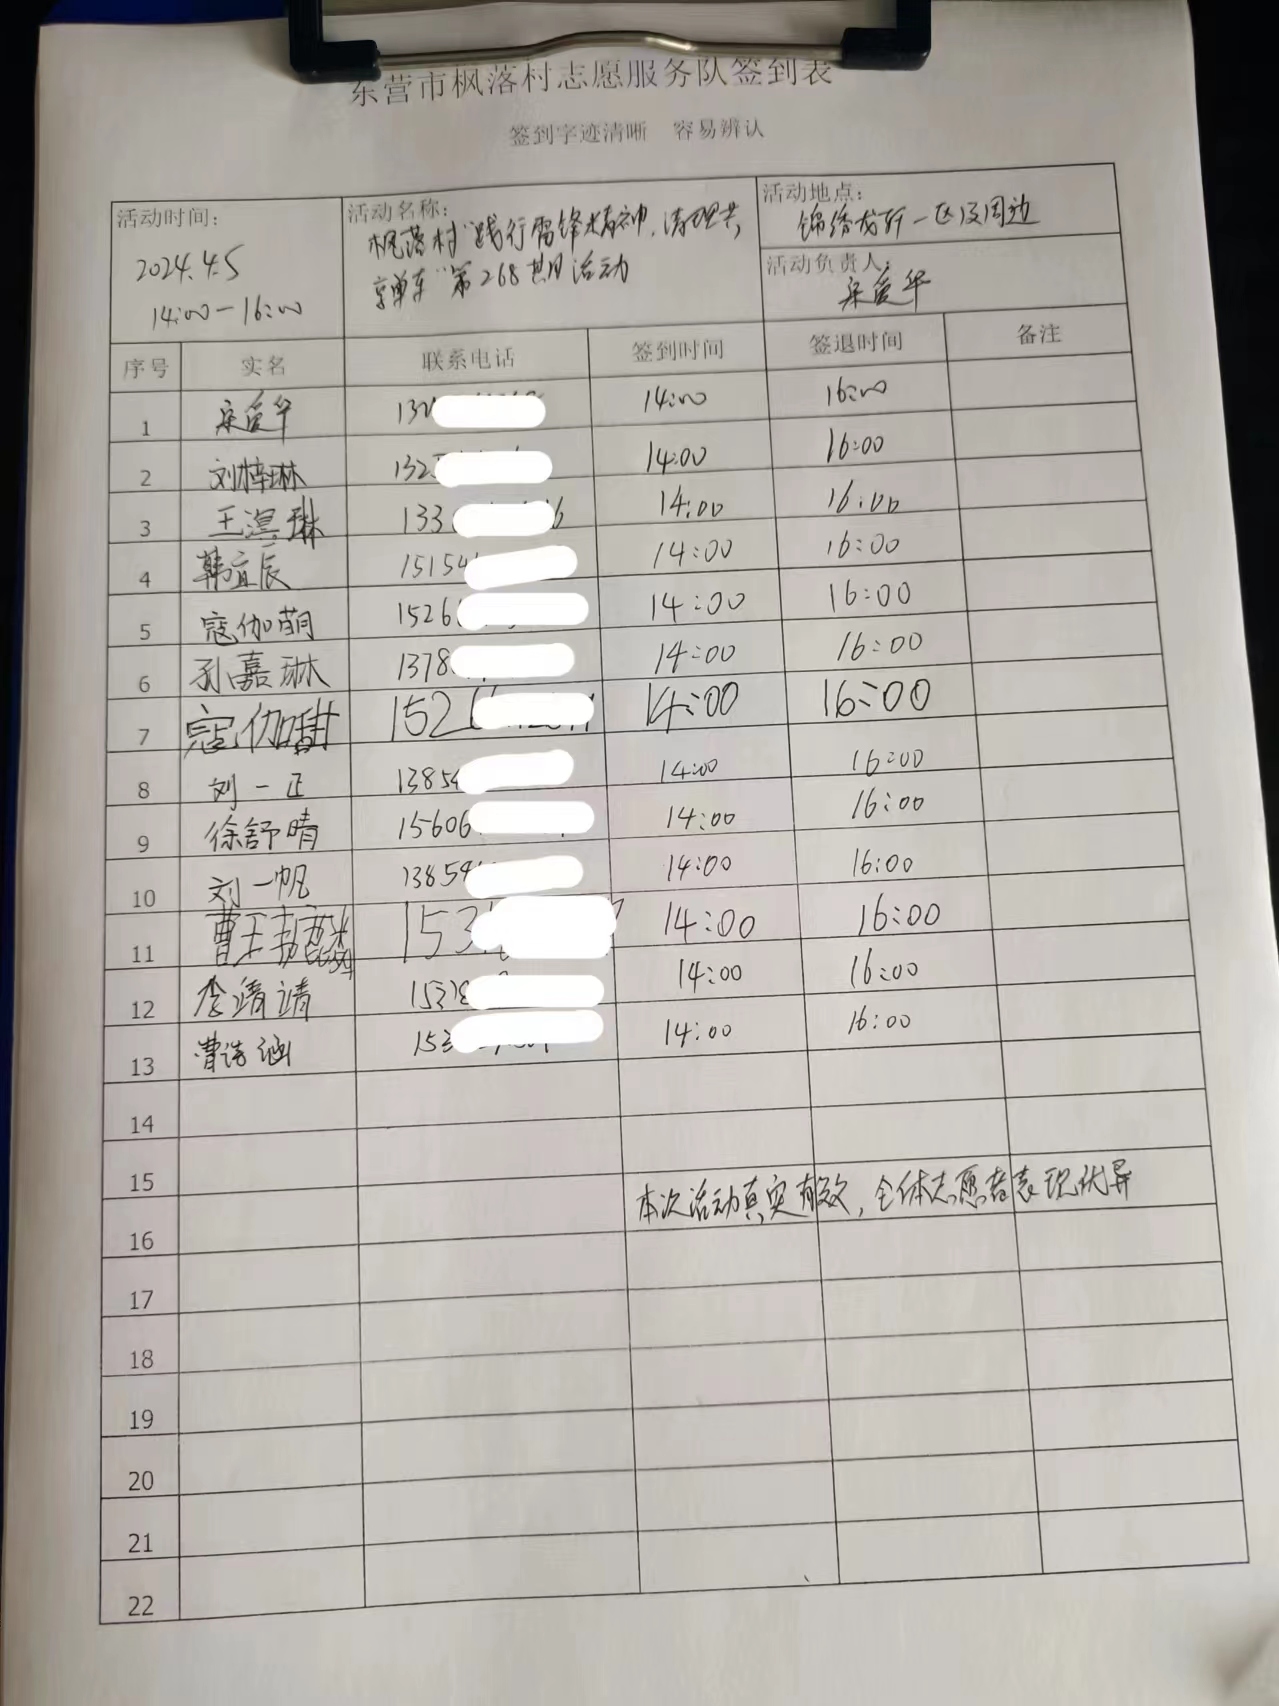 东营市枫落村志愿服务队签到表
签到字迹清晰 容易辨认
活动时间:
2024.4.5
14:00-16:00
活动名称:
枫落村"践行雷锋精神,清理共
享单车"第268期活动
活动地点:
锦绣龙轩一区及周边
活动负责人:
宋爱华
序号 实名 联系电话 签到时间 签退时间 备注
1 宋爱华 132 14:00 16:00
2 刘梓琳 132 14:00 16:00
3 王淏琳 133 6 14:00 16:00
4 韩宜辰 15154 14:00 16:00
5 寇伽萌 1526 14:00 16:00
6 孙嘉琳 1378 14:00 16:00
7 寇伽甜 152 14:00 16:00
8 刘一正 13854 14:00 16:00
9 徐舒晴 15606 14:00 16:00
10 刘一帆 13854 14:00 16:00
11 曹王 153 14:00 16:00
12 李靖靖 1531 14:00 16:00
13 曹涵 153 14:00 16:00
14
15
本次活动真实有效,全体志愿者表现优异
16
17
18
19
20
21
22